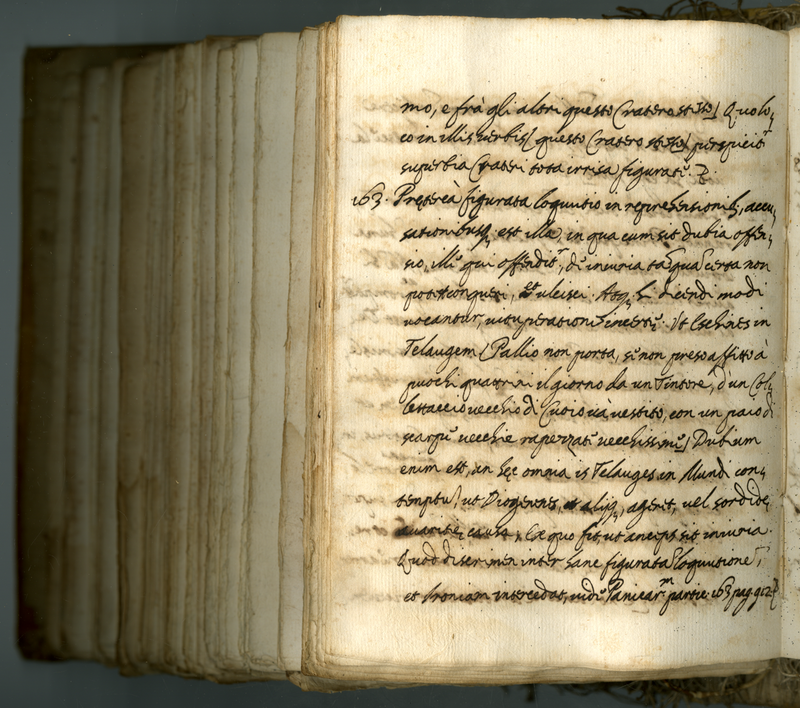 mo, e frà gli altri questo Cratero stesso] Quo lo,
co in illis verbis [questo Cratero stesso] perspicit.r
superbia Crateri tota irrisa figurat.e
163. Pręterea figurata loquutio in reprehensionib, accu,
sationibusq, est illa, in qua cum sit dubia offen,
sio, ille qui offendit.r, de iniuria ta qua certa non
potest conqueri, et ulcisci. Atq, hi dicendi modi
vocantur, vituperationes incertę. Ut Eschines in
Telaugem [Pallio non porta, se non preso affitto à
puochi quattrini il giorno da un Tintore, d'un Col,
lettaccio vecchio di Cuoio và vestito, con un paio di
scarpe vecchie rapezzate vecchissime] Dubium
enim est, an hęc omnia is Telauges in Mundi con,
temptu, ut Diogenes, et alijq, agerit, vel sordidę
avaritię causa. Ex quo fit, ut anceps sit iniuria.
Quod discrimen inter sane figurata loquutione,
et Ironiam intercedat, vide Panicar.m partic. 163 pag. 912